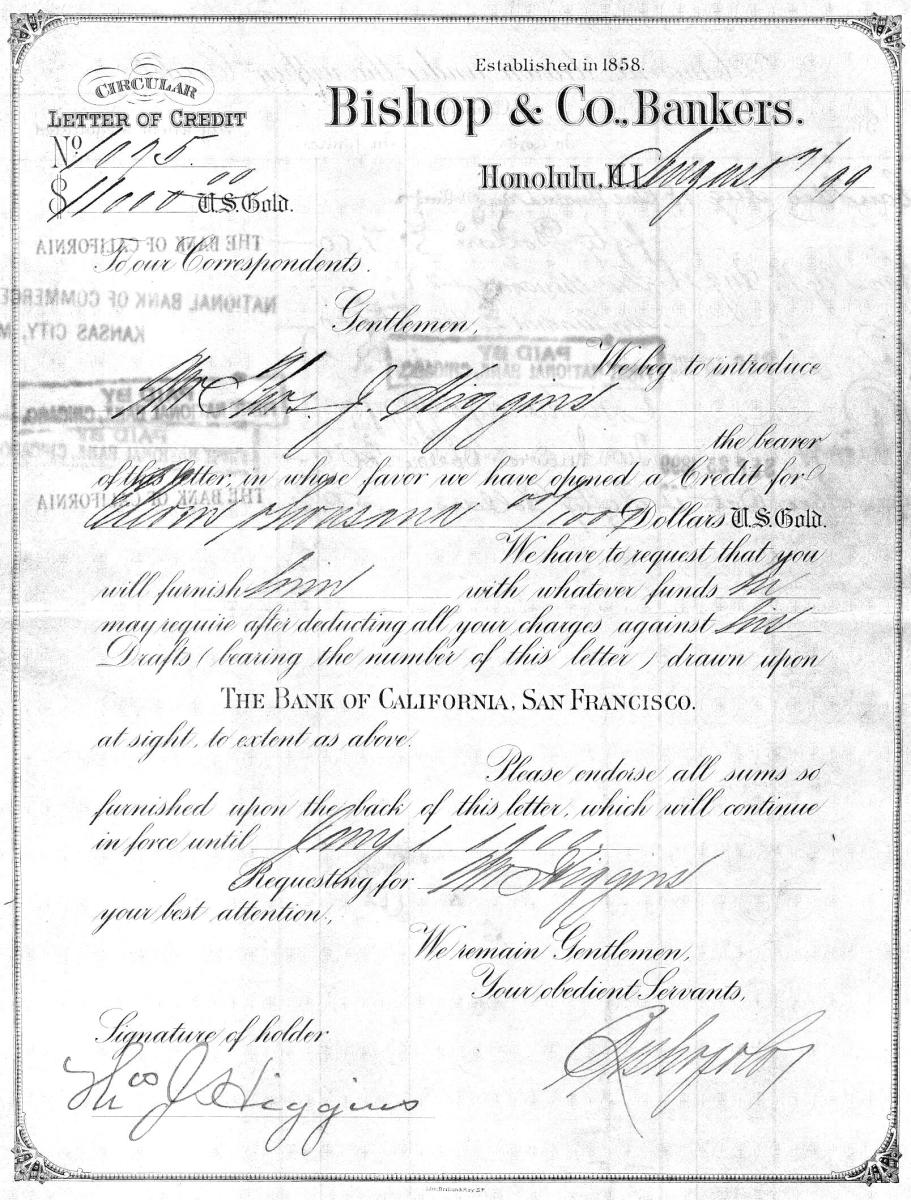 Established in 1858.
CIRCULAR
LETTER OF CREDIT
Bishop & Co., Bankers.
No. 1095.
Honolulu, H.I. August 7/99
$11000 00 U.S. Gold.
THE BANK OF CALIFORNIA
To our Correspondents.
NATIONAL BANK OF COMMERCE
KANSAS CITY, M
Gentlemen,
PAID BY
NATIONAL BANK, CHICAGO
We beg to introduce
Mr Thos. J. Higgins
PAID BY
NATIONAL BANK, CHICAGO
the bearer
of this letter, in whose favor we have opened a Credit for
THE BANK OF CALIFORNIA
Eleven thousand 00/100 Dollars U.S. Gold.
We have to request that you
will furnish him with whatever funds he
may require after deducting all your charges against his
Drafts (bearing the number of this letter) drawn upon
THE BANK OF CALIFORNIA, SAN FRANCISCO.
at sight, to extent as above.
Please endorse all sums so
furnished upon the back of this letter, which will continue
in force until 1 1900
Requesting for Mr Higgins
your best attention.,
We remain Gentlemen,
Your obedient Servants,
Signature of holder
Bishop & Co
Thos J Higgins